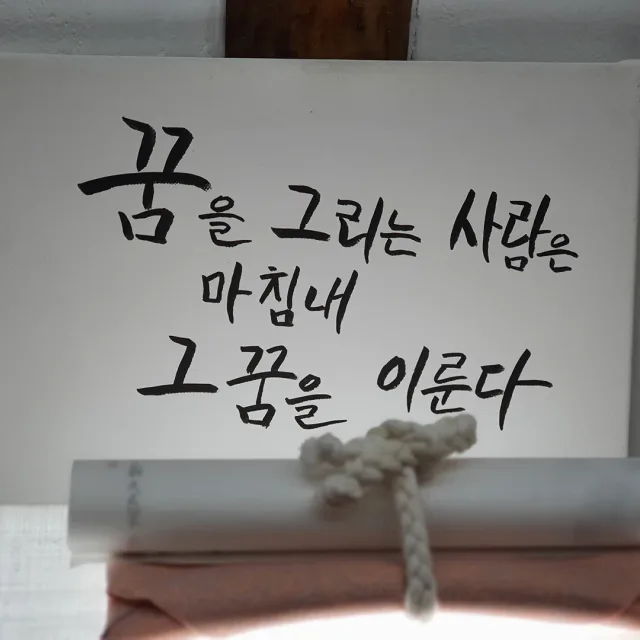 꿈을 그리는 사람은
마침내
그 꿈을 이룬다